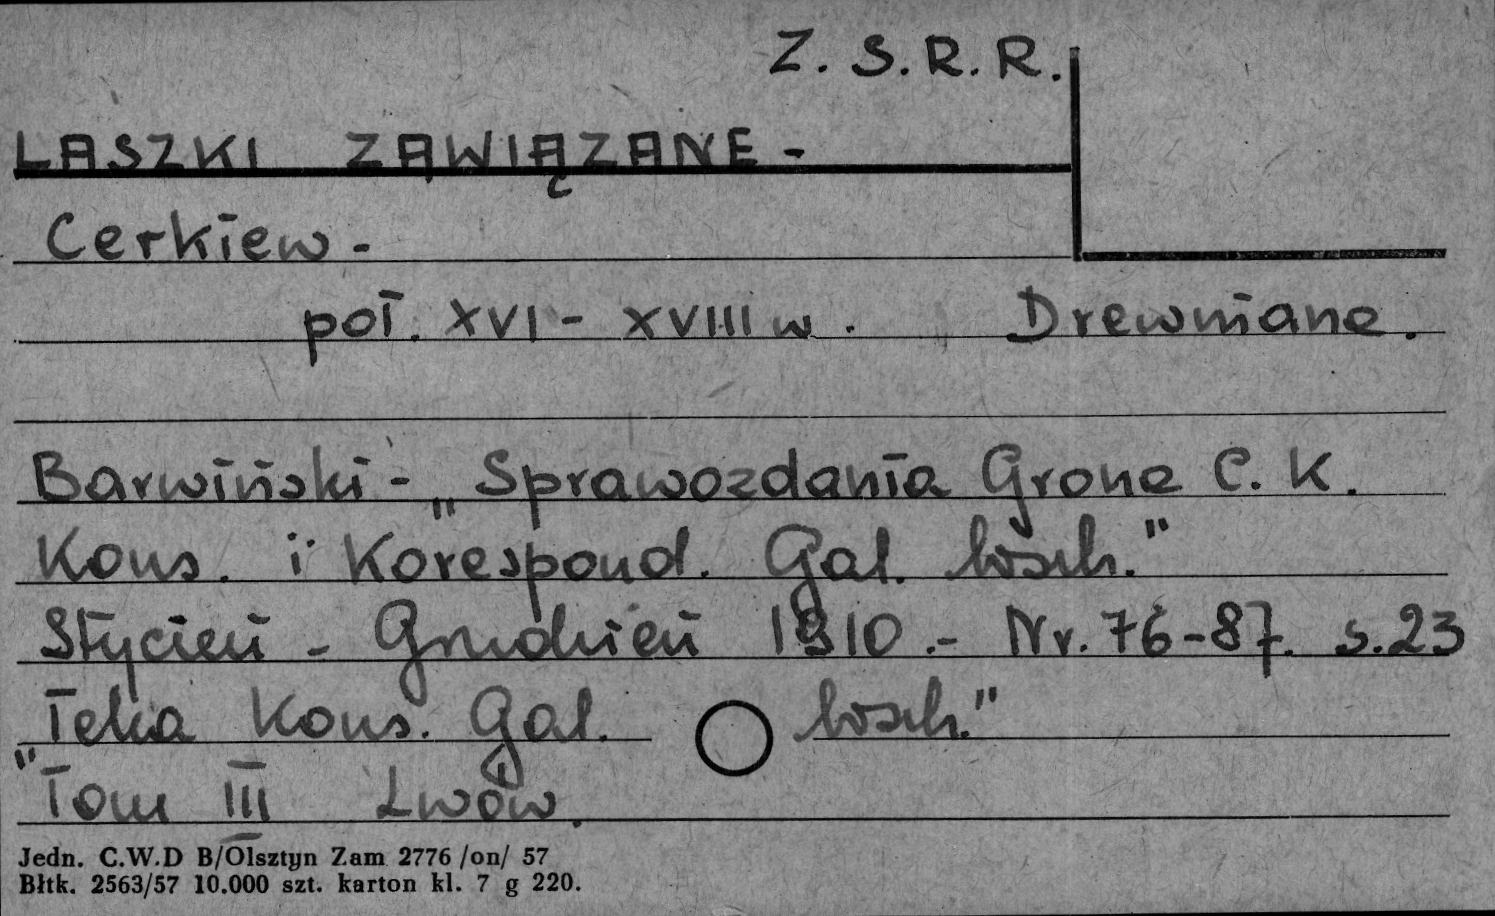 Z. S. R. R.
LASZKI ZAWIĄZANE -
Cerkiew -
poł. XVI - XVIII w. Drewniane.
Barwiński - „Sprawozdania Grona C. K.
Kons. i Korespond. Gal. Wsch."
Styczeń - Grudzień 1910. - Nr. 76-87. s. 23
„Teka Kons. Gal. Wsch."
Tom III Lwów.
Jedn. C.W.D B/Olsztyn Zam 2776 /on/ 57
Błtk. 2563/57 10.000 szt. karton kl. 7 g 220.